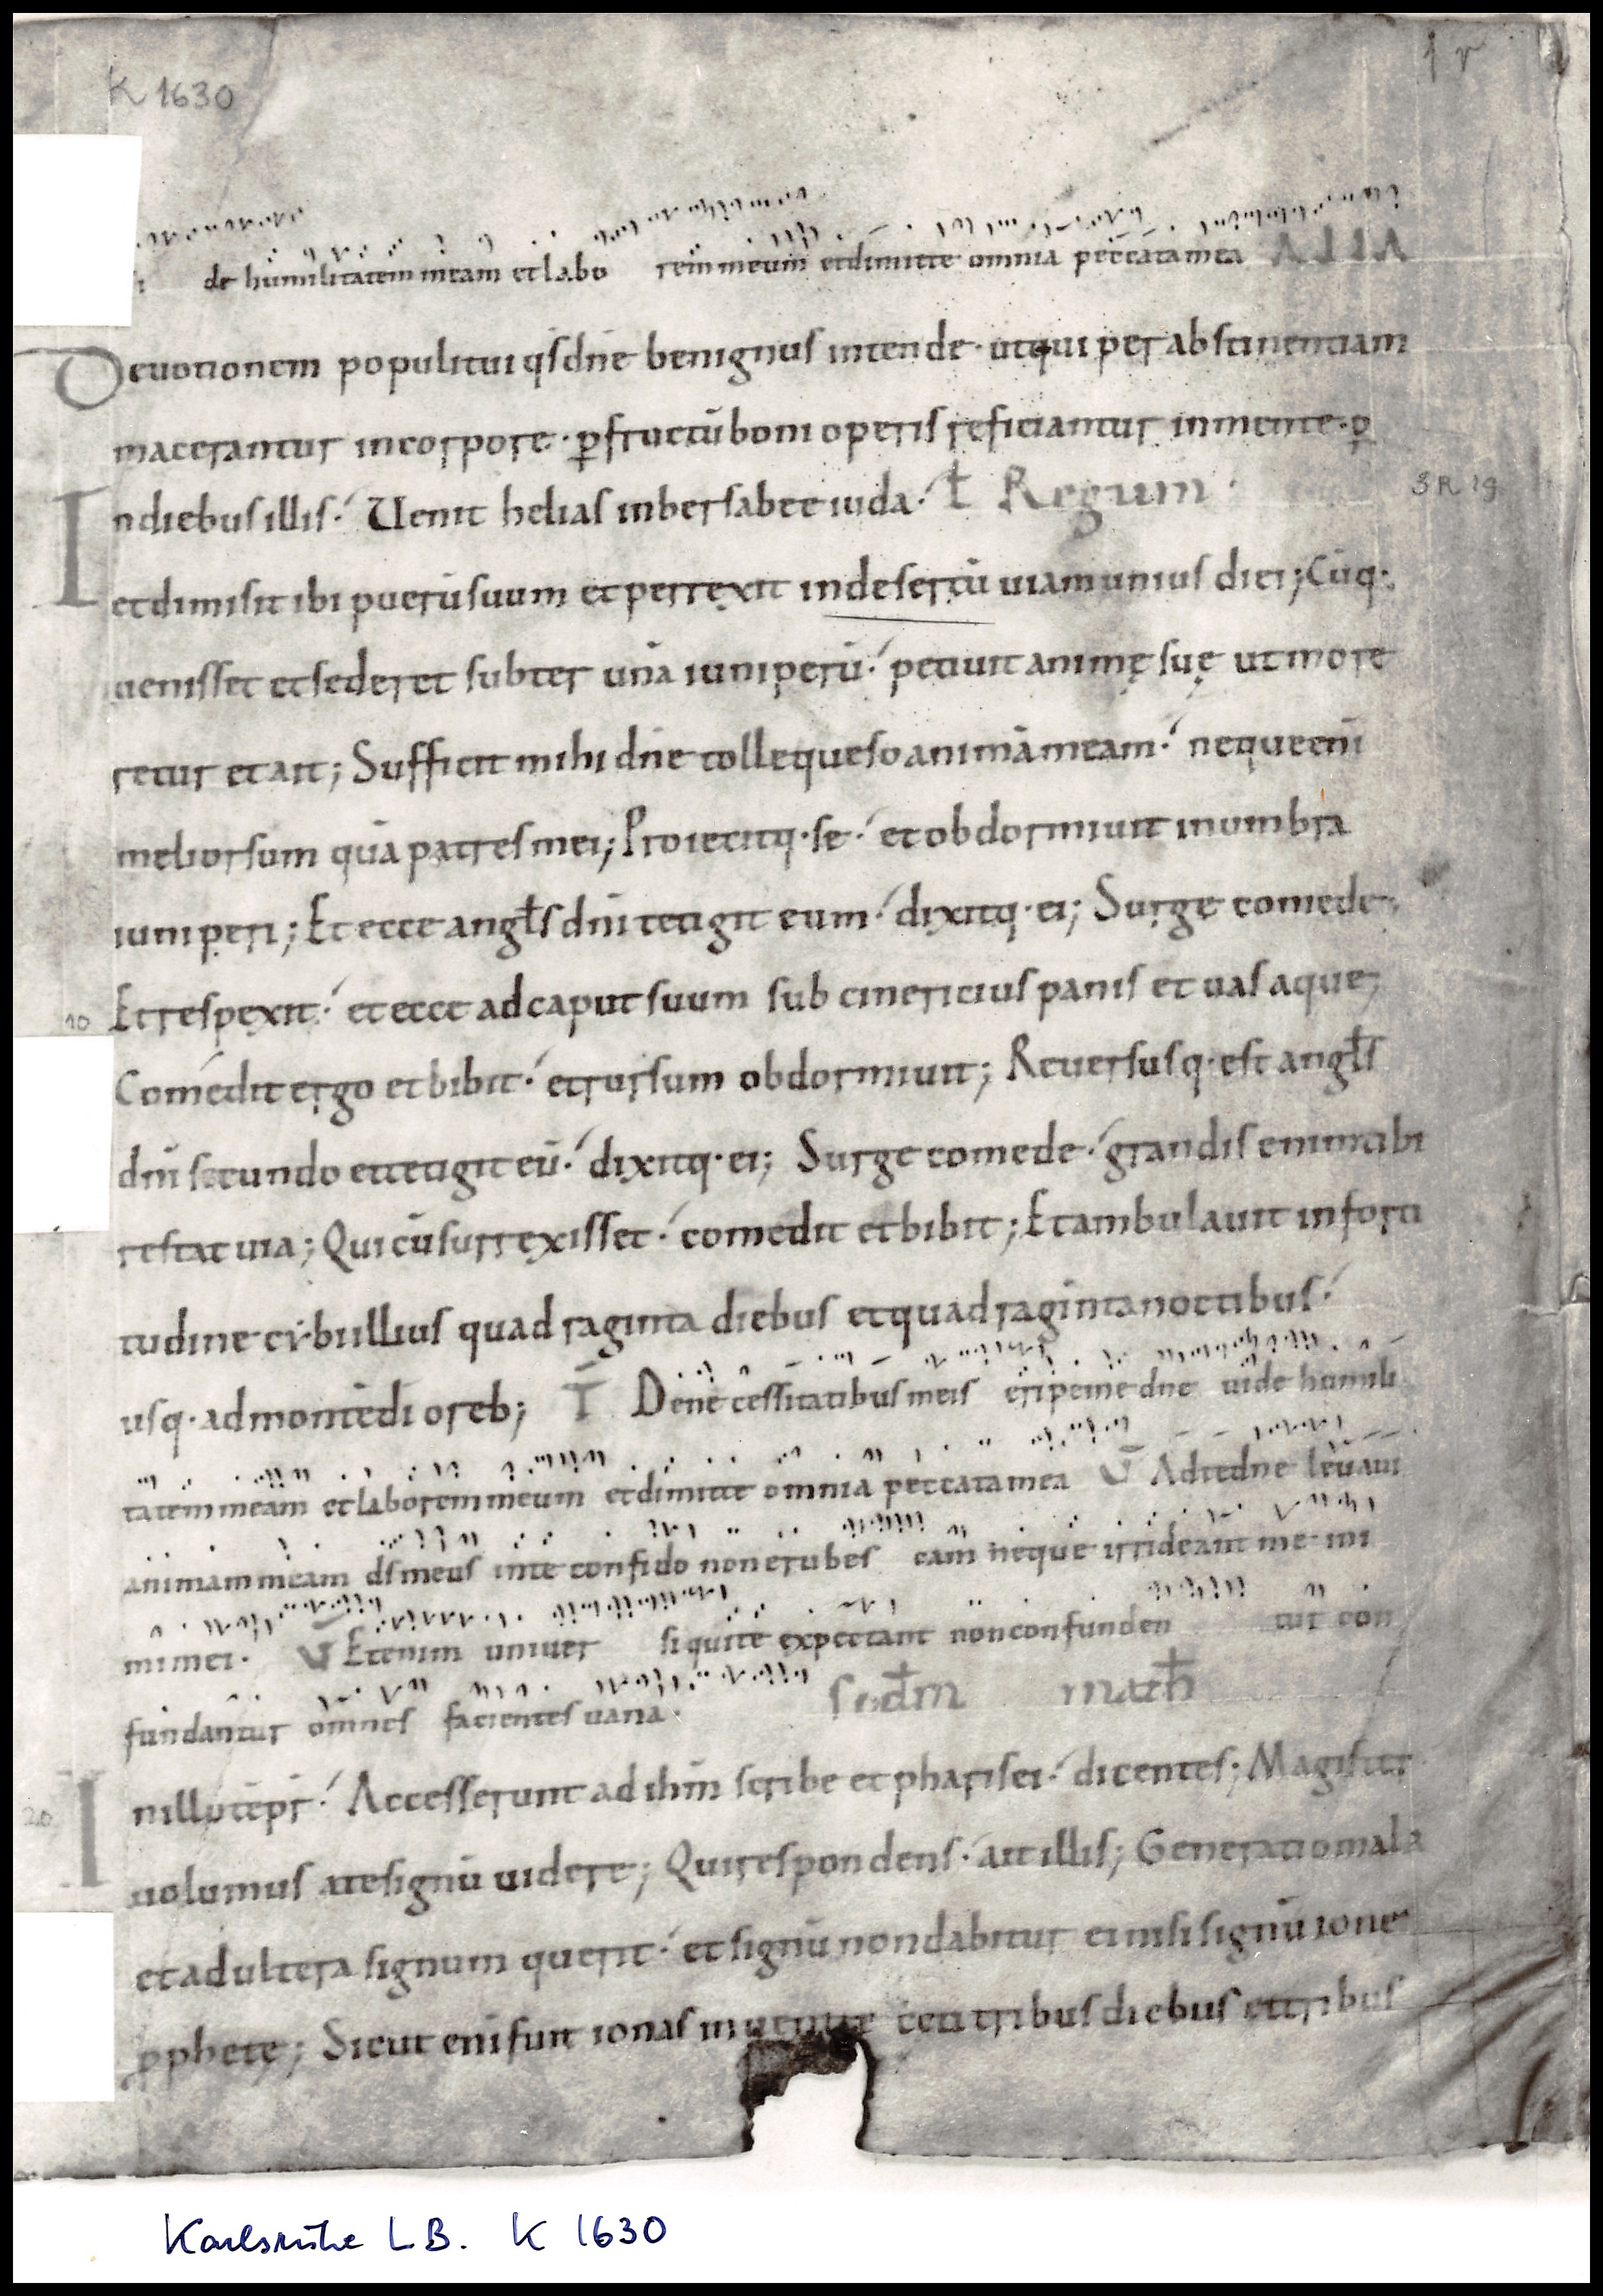 K 1630
1 r
de humilitatem meam et labo rem meum et dimitte omnia peccata mea A L L A
Deuotionem populi tui qs dne benignus intende · ut qui per abstinentiam
macerantur in corpore · ꝑ fructū boni operis reficiantur in mente · ꝑ
In diebus illis · Uenit helias in bersabee iuda · Ł Regum
3 R 19
et dimisit ibi puerū suum et perrexit in desertū uiam unius diei ; Cūq ·
uenisset et sederet subter unā iuniperū · petiuit animę suę ut more
retur et ait ; Sufficit mihi dne tolle queso animā meam · neque eni
melior sum quā patres mei ; Proiecitq · se · et obdormiuit in umbra
iuniperi ; Et ecce angls dni tetigit eum · dixitq · ei ; Surge comede ·
10
Et respexit · et ecce ad caput suum sub cinericius panis et uas aque ;
Comedit ergo et bibit · et rursum obdormiuit ; Reuersusq · est angls
dni secundo et tetigit eū · dixitq · ei ; Surge comede · grandis enim tibi
restat uia ; Qui cū surrexisset · comedit et bibit ; Et ambulauit in forti
tudine cybi illius quadraginta diebus et quadraginta noctibus ·
usq · ad montē di oreb ; T̄ De necessitatibus meis eripe me dne uide humili
tatem meam et laborem meum et dimitte omnia peccata mea V̄ Ad te dne leuaui
animam meam ds meus in te confido non erubes cam neque irrideant me ini
mi mei · V Etenim uniuer si qui te expectant non confunden tur con
fundantur omnes facientes uana · scdm math
20
In illo tēpr · Accesserunt ad ihm scribe et pharisei · dicentes ; Magister
uolumus a te signū uidere ; Qui respondens · ait illis ; Generatio mala
et adultera signum querit · et signū non dabitur ei nisi signū ione
ꝓphetę ; Sicut eni fuit ionas in uentre ceti tribus diebus et tribus
Karlsruhe LB. K 1630